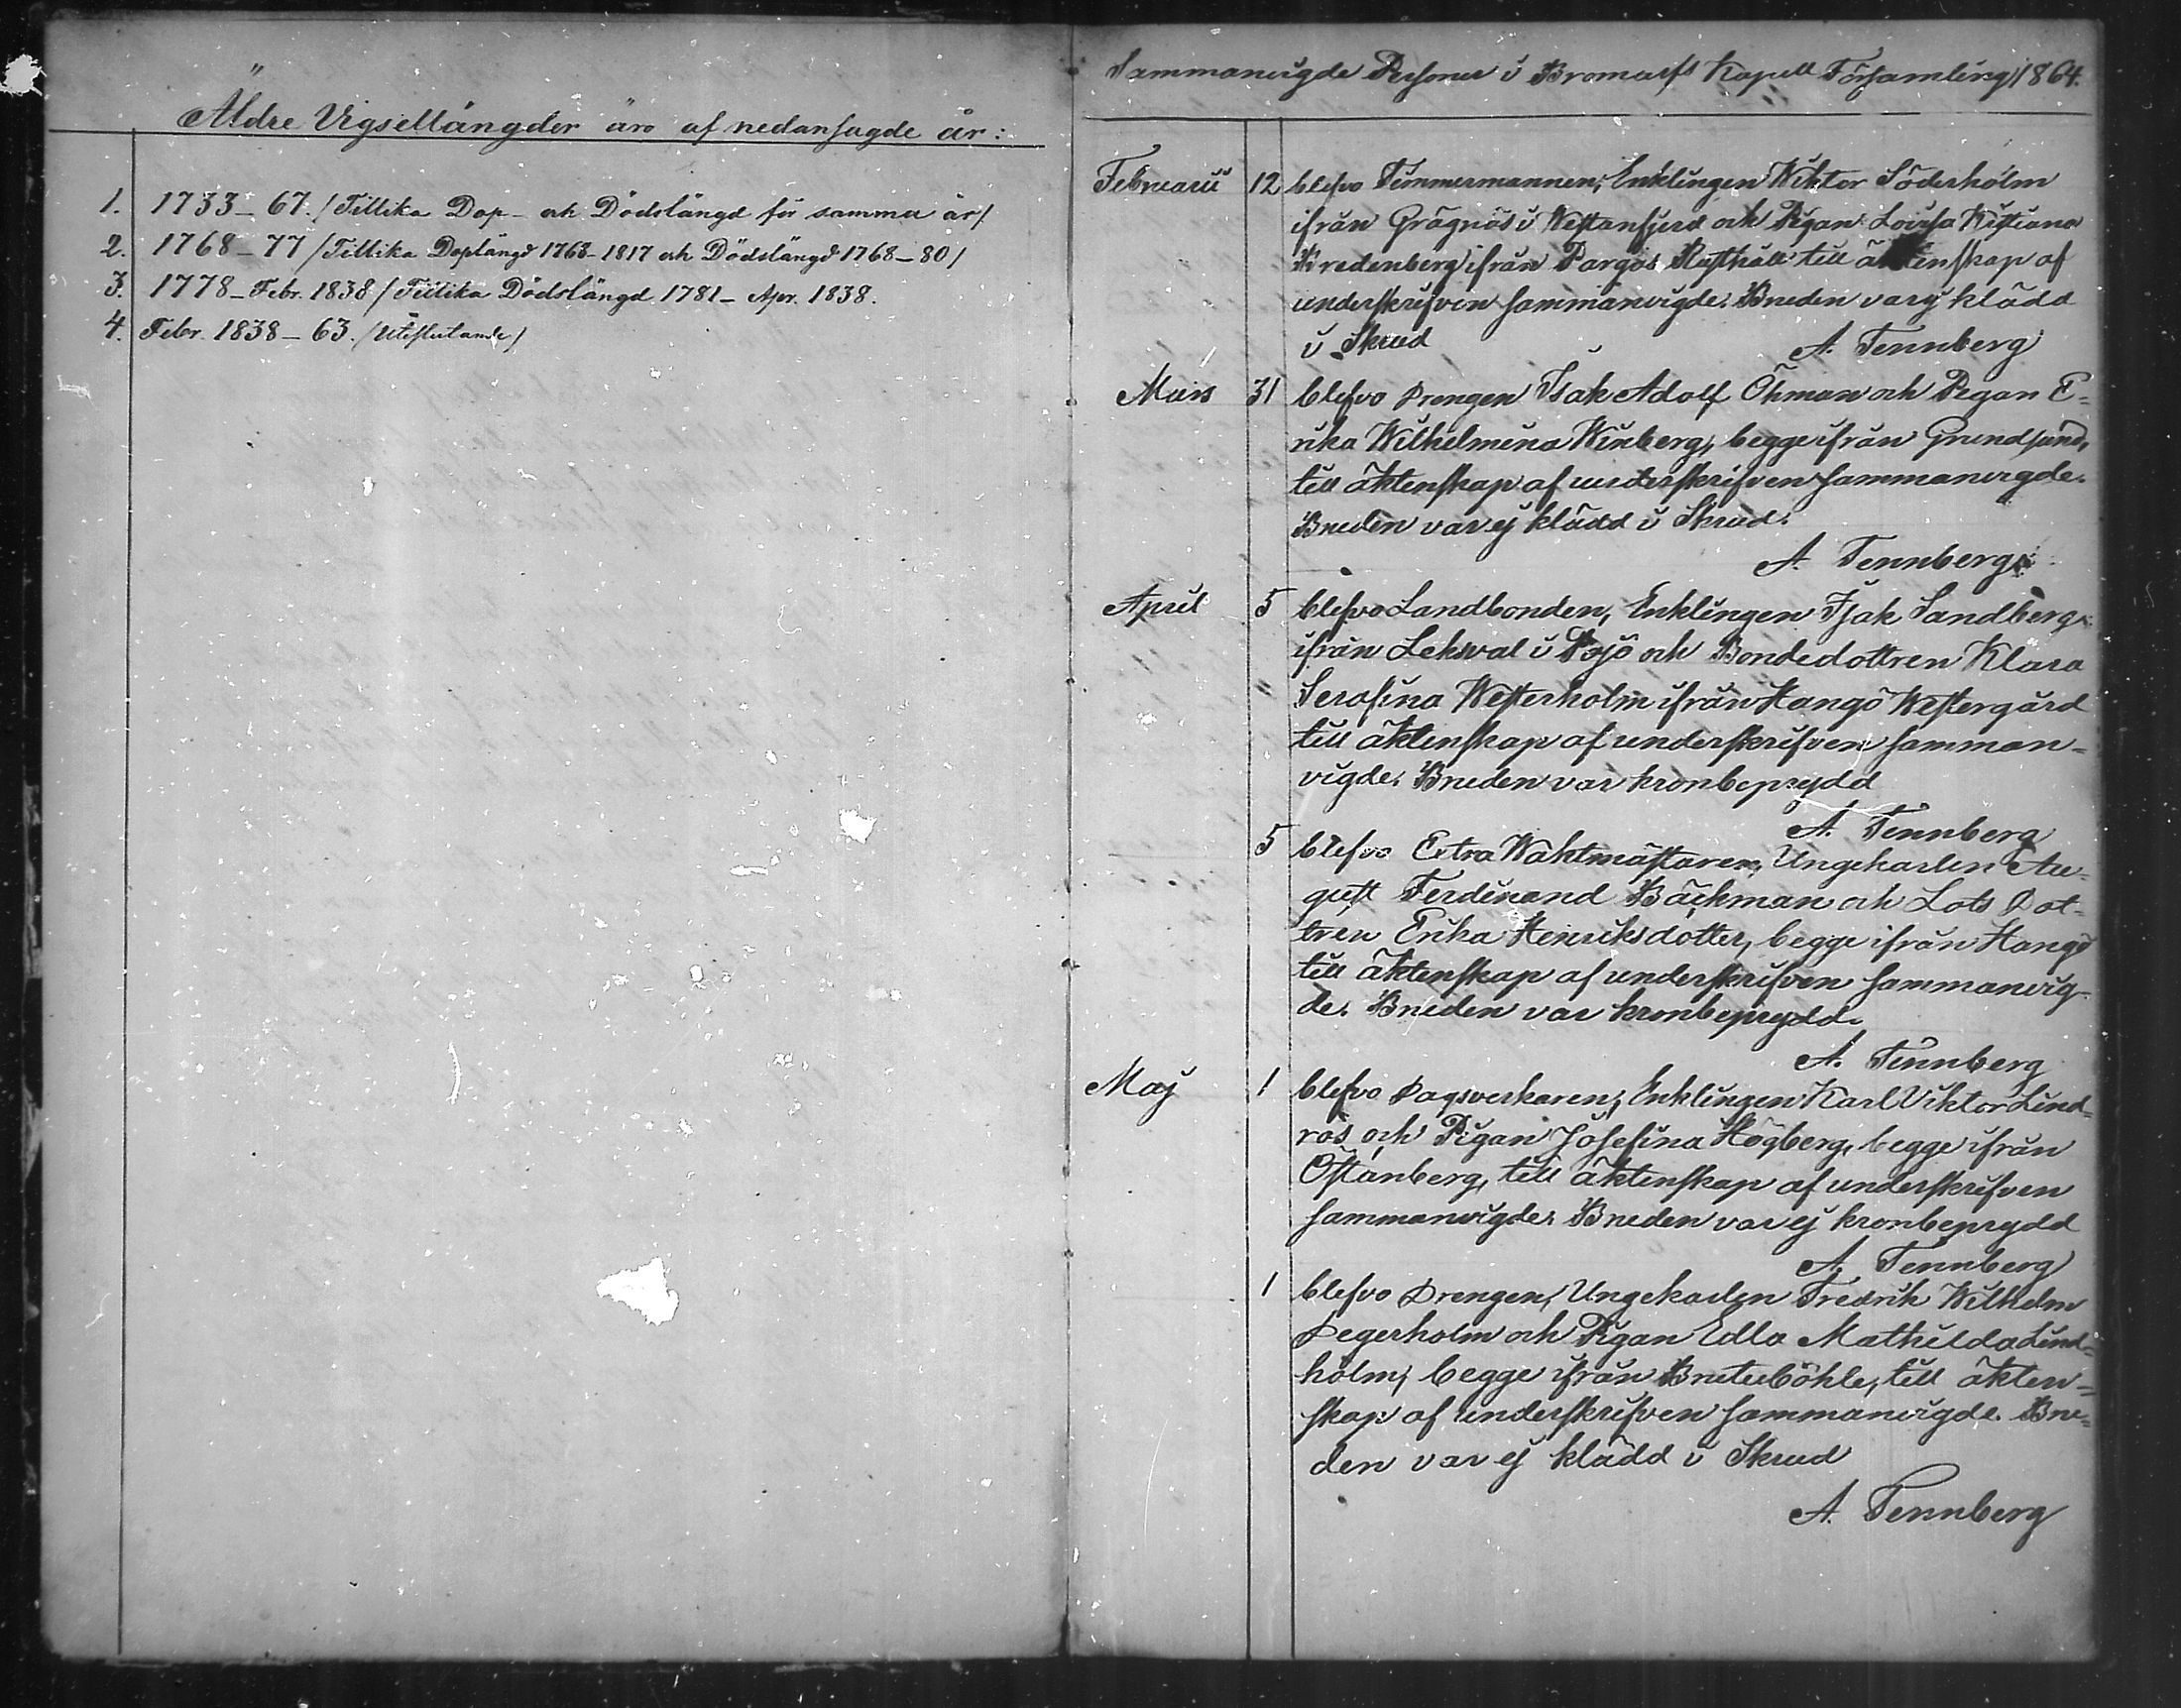 Äldre Vigsellängder äro af nedansagde år:
1. 1733–67. /Tillika Dop- och Dödslängd för samma år/
2. 1768–77 /Tillika Doplängd 1768–1817 och Dödslängd 1768–80/
3. 1778–Febr. 1838 /Tillika Dödslängd 1781–Apr. 1838.
4. Febr. 1838–63. /Uteslutande/
Sammanvigde Personer i Bromarfs Kapell Församling 1864.
Februarii 12 blefvo Timmermannen, Enklingen Wiktor Söderholm
ifrån Grägnäs i Westanfjerd och Pigan Lovisa Kristiana
Bredenberg ifrån Pargos Rusthåll till äktenskap af
underskrifven sammanvigde. Bruden var ej klädd
i Skrud A. Tennberg
Mars 31 blefvo Drengen Isak Adolf Öhman och Pigan E=
rika Wilhelmina Winberg, begge ifrån Grundsund,
till äktenskap af underskrifven sammanvigde.
Bruden var ej klädd i Skrud.
A. Tennberg
April 5 blefvo Landbonden, Enklingen Isak Sandberg
ifrån Leksval i Pojo och Bondedottren Klara
Serafina Westerholm ifrån Hangö Westergård
till äktenskap af underskrifven samman=
vigde. Bruden var kronbeprydd
A. Tennberg
5 blefvo Extra Waktmästaren, Ungekarlen Au=
gust Ferdinand Bäckman och Lots Dot=
tren Erika Henriksdotter, begge ifrån Hangö
till äktenskap af underskrifven sammanvig=
de. Bruden var kronbeprydd.
A. Tennberg
Maj 1 blefvo Dagsverkaren, Enklingen Karl Viktor Lind=
ros och Pigan Josefina Högberg, begge ifrån
Östanberg, till äktenskap af underskrifven
sammanvigde. Bruden var ej kronbeprydd
A. Tennberg
1 blefvo Drengen, Ungekarlen Fredrik Wilhelm
Degerholm och Pigan Edla Mathilda Lind=
holm, begge ifrån Brutuböhle, till äkten=
skap af underskrifven sammanvigde. Bru=
den var ej klädd i Skrud
A. Tennberg